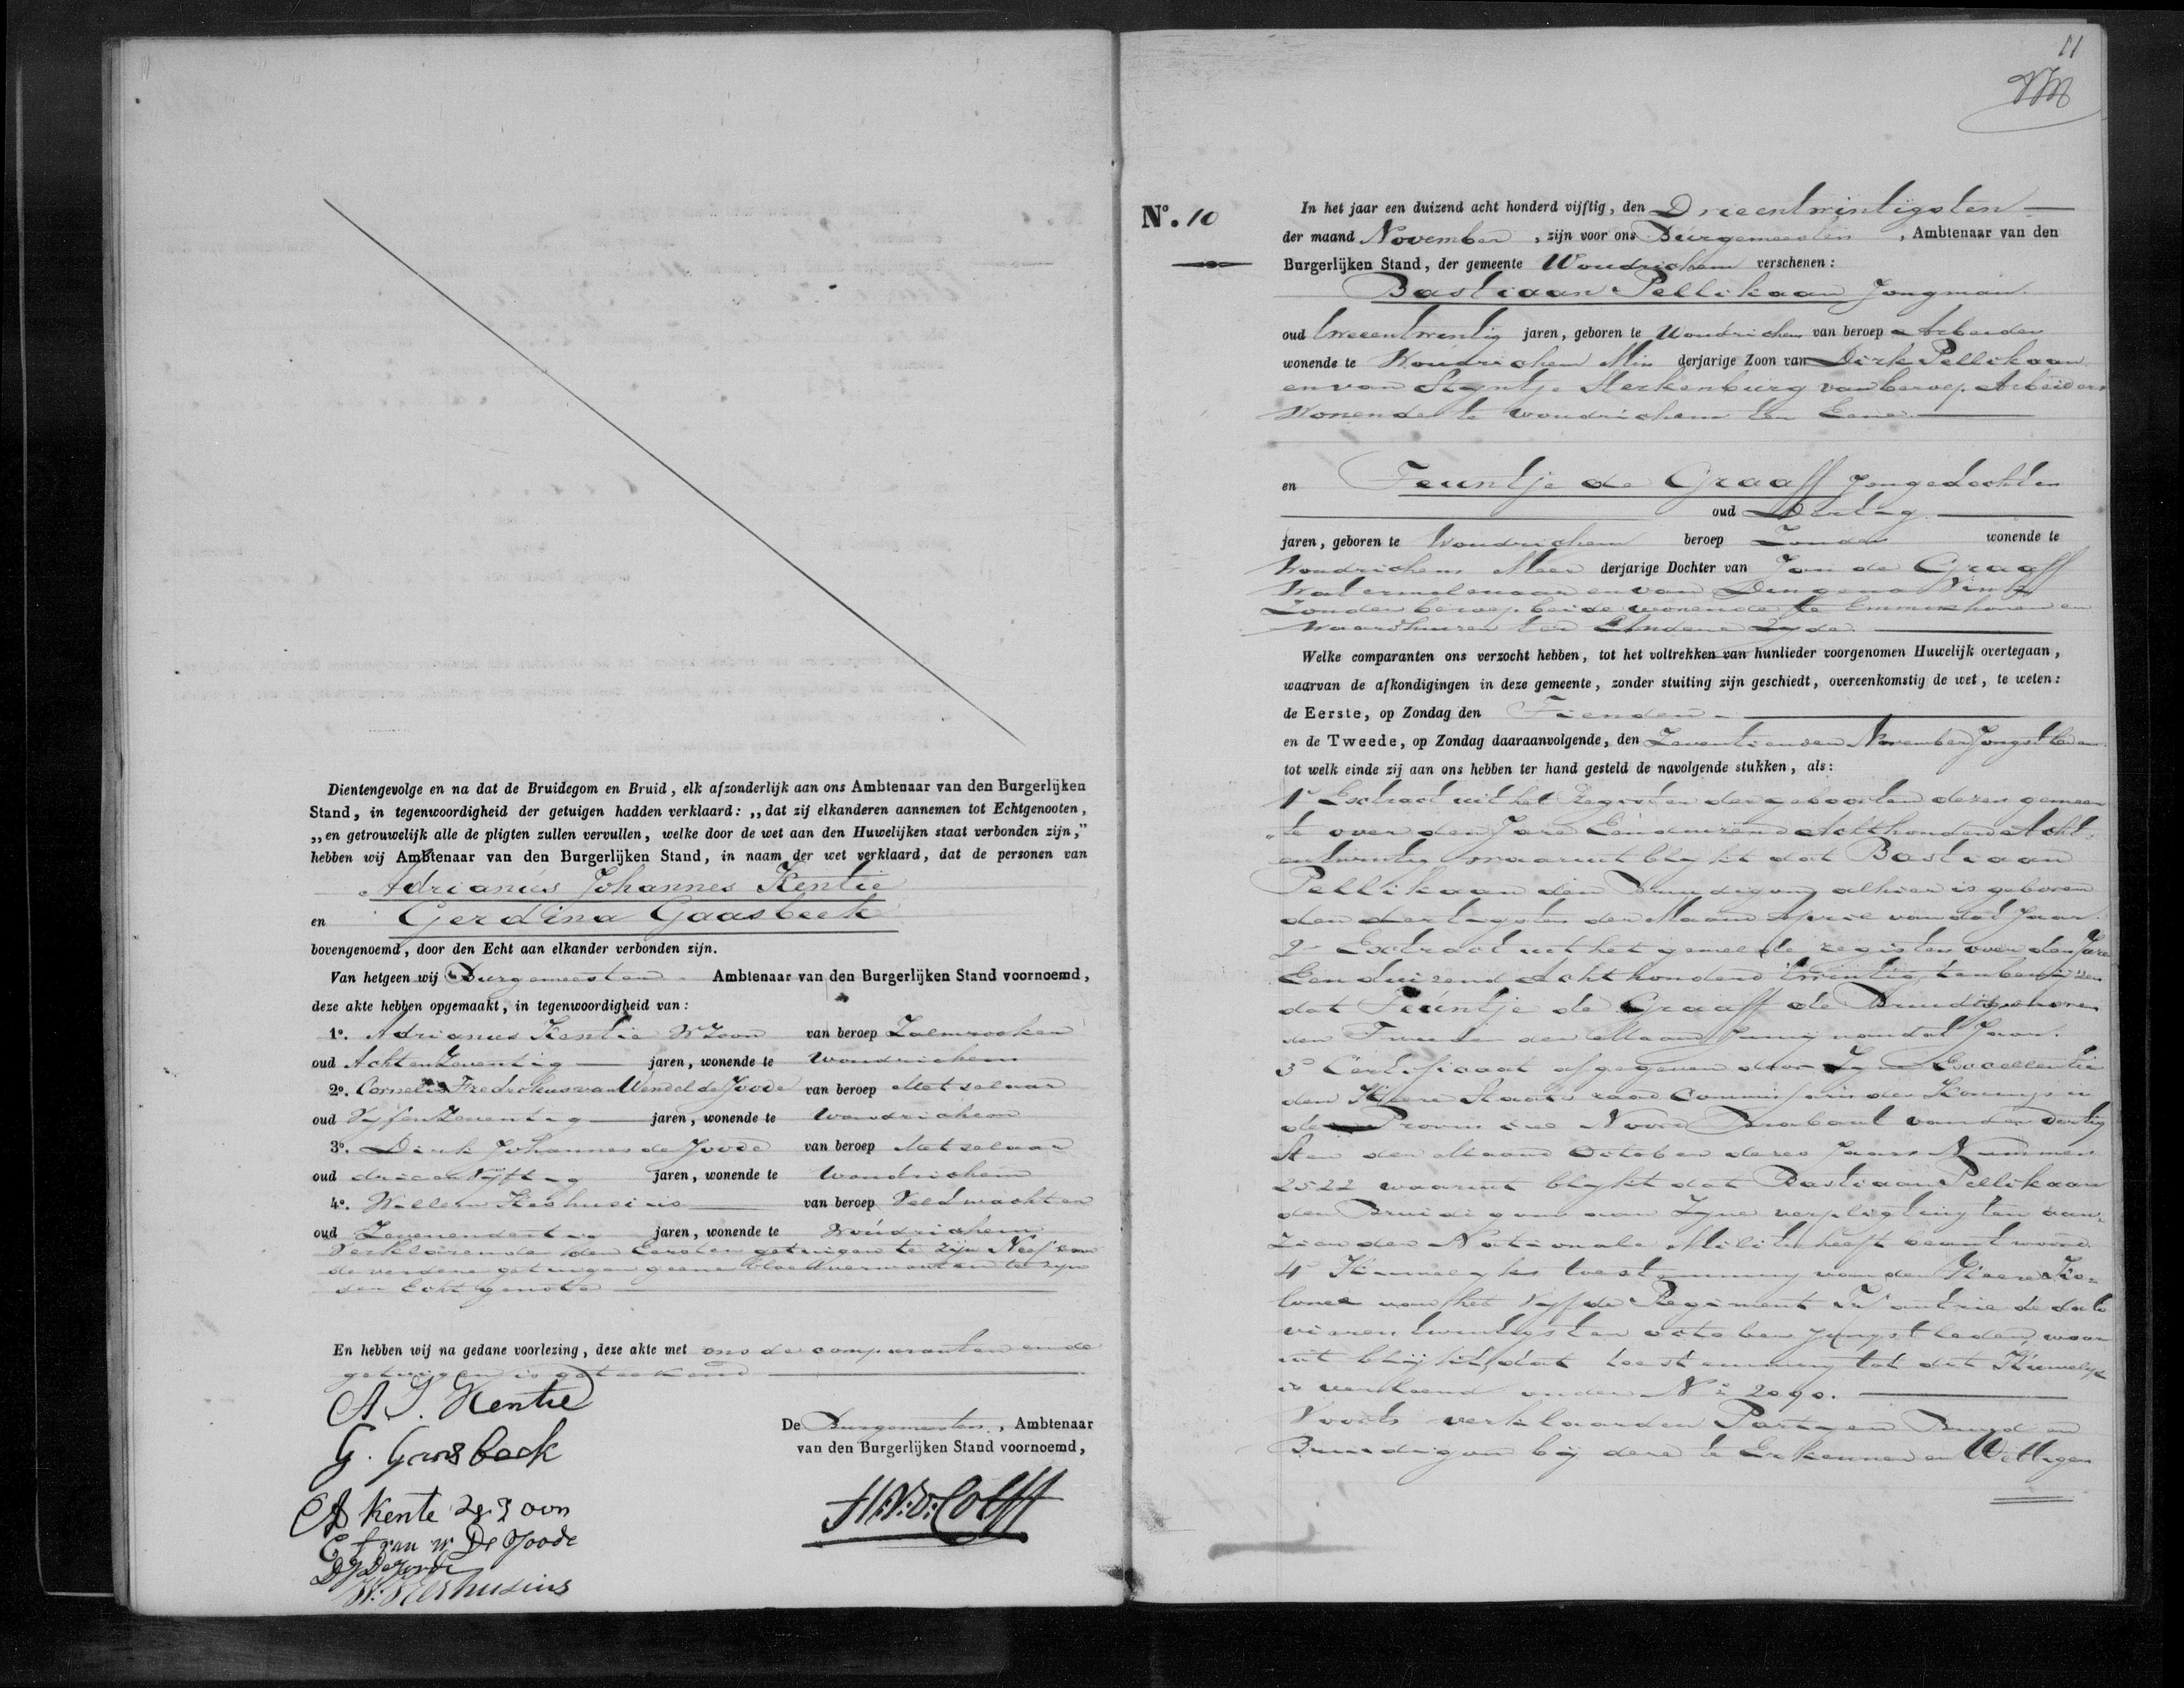 Dientengevolge en na dat de Bruidegom en Bruid, elk afzonderlijk aan ons Ambtenaar van den Burgerlijken
Stand, in tegenwoordigheid der getuigen hadden verklaard: „dat zij elkanderen aannemen tot Echtgenooten,
„en getrouwelijk alle de pligten zullen vervullen, welke door de wet aan den Huwelijken staat verbonden zijn,"
hebben wij Ambtenaar van den Burgerlijken Stand, in naam der wet verklaard, dat de personen van
Adrianus Johannes Kentie
en Gerdina Gaasbeek
bovengenoemd, door den Echt aan elkander verbonden zijn.
Van hetgeen wij Burgemeester Ambtenaar van den Burgerlijken Stand voornoemd,
deze akte hebben opgemaakt, in tegenwoordigheid van:
1º. Adrianus Kentie WZoon van beroep Zalmrooker
oud Achtenzeventig jaren, wonende te Woudrichem
2º. Cornelis Fredrikus van Wendel de Joode van beroep Metselaar
oud Vyfenzeventig jaren, wonende te Woudrichem
3º. Dirk Johannes de Joode van beroep Metselaar
oud drieenvijftig jaren, wonende te Woudrichem
4º. Willem Keshusius van beroep Veldwachter
oud Zevenendertig jaren, wonende te Woudrichem
Verklarende den Eersten getuigen te zijn Neef en
de verdere getuigen geene bloedverwanten te zijn
der Echtgenote
En hebben wij na gedane voorlezing, deze akte met ons de comparanten en de
getuigen is geteekend
A J. Kentie
G. Gaasbeek
A Kente
C F van W De Joode
DJ De Joode
W. Keshusius
De Burgemeester, Ambtenaar
van den Burgerlijken Stand voornoemd,
11
Nº. 10
In het jaar een duizend acht honderd vijftig, den Drieentwintigsten
der maand November, zijn voor ons Burgemeester, Ambtenaar van den
Burgerlijken Stand, der gemeente Woudrichem verschenen:
Bastiaan Pellikaan Jongman
oud tweeentwintig jaren, geboren te Woudrichem van beroep Arbeider
wonende te Woudrichem Min derjarige Zoon van Dirk Pellikaan
en van Styntje Sterkenburg van beroep Arbeiders
Wonende te woudrichem ter Eene
en Teuntje de Graaff Jongedochter
oud Dertig
jaren, geboren te Woudrichem beroep Zonder wonende te
Woudrichem Meer derjarige Dochter van Jan de Graaff
Watermolenaar en van Dingena Vink
Zonder beroep beide wonende te Emmikhoven en
Waardhuizen ter Andere Zyde
Welke comparanten ons verzocht hebben, tot het voltrekken van hunlieder voorgenomen Huwelijk overtegaan,
waarvan de afkondigingen in deze gemeente, zonder stuiting zijn geschiedt, overeenkomstig de wet, te weten:
de Eerste, op Zondag den Tienden
en de Tweede, op Zondag daaraanvolgende, den Zeventienden November Jongstleden
tot welk einde zij aan ons hebben ter hand gesteld de navolgende stukken, als:
1º Extract uit het Register der geboorten dezer gemeen
te over den Jare Eenduizend Achthonderd Acht
entwintig waaruit blykt dat Bastiaan
Pellikaan den Bruidigom alhier is geboren
den dertigsten der Maand April van dat Jaar.
2º Extract uit het gemeente register over den Jare
Eenduizend Acht honderd twintig ten bewijze
dat Teuntje de Graaff de Bruid geboren
den Tweeden der Maand Juny van dat Jaar.
3º Certificaat afgegeven door Zyn Excellentie
den Heere Staatsraad Commissaris des Konings in
de Provincie Noord Braband van den Dertig
sten der Maand October dezes Jaars Nummer
2522 waaruit blykt dat Bastiaan Pellikaan
den Bruidigom aan Zyne verpligting ten aan
zien der Nationale Militie heeft beantwoord.
4º Huwelyks toestemming van den Heere Ko=
lonel van het Vyfde Regiment Infantrie de dato
vierentwintigsten october jongstleden waar
uit blijkt dat toestemming tot dit Huwelyk
is verleend onder Nº 2090.
Voorts verklaarden Partyen Bruid en
Bruidigom bij deze te Erkennen en Wettigen